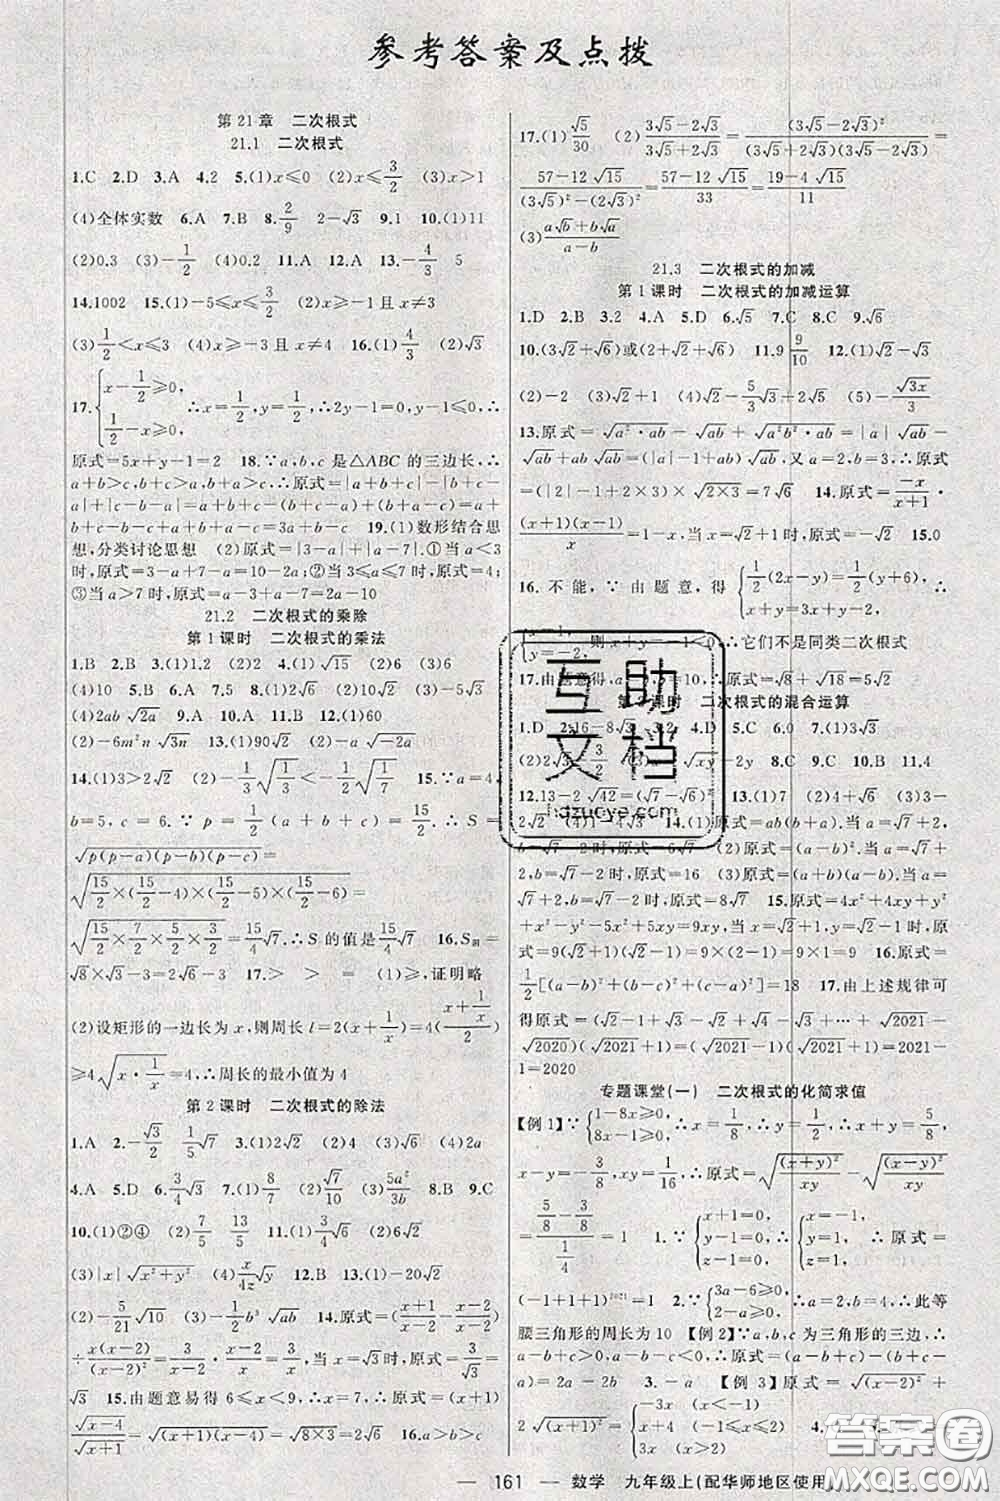 参考答案及点拨
第21章 二次根式
21.1 二次根式
1.C 2.D 3.A 4.2 5.(1)x≤0 (2)x≤3/2 (3)x>1
(4)全体实数 6.A 7.B 8.2/9 2-√3 9.1 10.(1)11
(2)0.3 (3)-1/2 (4)0.2 11.A 12.A 13.-4/3 5
14.1002 15.(1)-5≤x≤3/2 (2)x≥-1且x≠3
(3)1/2<x≤3 (4)x≥-3且x≠4 16.(1)4/3 (2)√3
17.{x-1/2≥0, 1/2-x≥0, ∴x=1/2,y=1/2,∴2y-1=0,y-1≤0,∴
原式=5x+y-1=2 18.∵a,b,c是△ABC的三边长,∴
a+b>c,b+c>a,b+a>c,∴原式=|a+b+c|-|b+c-
a|+|c-b-a|=a+b+c-(b+c-a)+(b+a-c)=a+
b+c-b-c+a+b+a-c=3a+b-c 19.(1)数形结合思
想,分类讨论思想 (2)原式=|3-a|+|a-7|.①当a<3
时,原式=3-a+7-a=10-2a;②当3≤a≤7时,原式=4;
③当a>7时,原式=a-3+a-7=2a-10
21.2 二次根式的乘除
第1课时 二次根式的乘法
1.B 2.B 3.(1)2 (2)2 4.(1)√15 (2)6 (3)6
(4)10 5.B 6.A 7.B 8.(1)2√6 (2)10 (3)2√10
(4)2ab√2a 9.A 10.A 11.B 12.(1)60
(2)-6m²n√3n 13.(1)90√2 (2)-a√-2a
14.(1)3>2√2 (2)-√1/3<-1/2√1/3 15.∵a=4,
b=5,c=6.∵p=1/2(a+b+c)=15/2.∴S=
√p(p-a)(p-b)(p-c)=
√15/2×(15/2-4)×(15/2-5)×(15/2-6)=
√15/2×7/2×5/2×3/2=15/4√7.∴S的值是15/4√7 16.S阴=
√8×√3-3=2√6-3 17.> > = (1)≥,证明略
(2)设矩形的一边长为x,则周长l=2(x+1/x)=4(x+1/x/2)
≥4√x·1/x,∴周长的最小值为4
第2课时 二次根式的除法
1.A 2.-√3/2 1/5√7 3.(1)2√3 (2)4 (3)√2 (4)2a
4.A 5.D 6.3/4√3 7.(1)8/7 (2)√7/10 (3)5a²/3b 8.B 9.C
10.(1)②④ (2)7/5 13/5 11.(1)3/4√6 (2)6√2
(3)|x|√x²+y² (4)x/4z√y 12.B 13.(1)-20√2
(2)-5/21√10 (3)-1/2b³√ab 14.原式=(x+1/x-2-1/x-2)
÷x(x-2)/(x-2)²=3/x-2·x-2/x=3/x,当x=√3时,原式=
√3 15.由题意易得6≤x<9,∴x=7,∴原式=(x+1)
√x-4/√x+1=√(x+1)(x-4)=√8×3=2√6 16.a>b>c
17.(1)√5/30 (2)3√5-2√3/3√5+2√3=(3√5-2√3)²/(3√5+2√3)(3√5-2√3)=
57-12√15/(3√5)²-(2√3)²=57-12√15/33=19-4√15/11
(3)a√b+b√a/a-b
21.3 二次根式的加减
第1课时 二次根式的加减运算
1.D 2.B 3.2 4.A 5.D 6.√5 7.C 8.C 9.√6
10.(3√2+√6)或(2√3+2√6) 11.9 9/10 12.(1)√2-√3
(2)-2 (3)√2+1 (4)√2-5/3√3+2 (5)-√3x/3
13.原式=√a²·ab-√ab+√a²b²·ab=|a|√ab-
√ab+ab√ab=(|a|-1+ab)√ab,又a=2,b=3,∴原式
=(|2|-1+2×3)×√2×3=7√6 14.原式=-x/x+1·
(x+1)(x-1)/x=1-x,当x=1+√2时,原式=-√2 15.0
16.不能,∵由题意,得{1/2(2x-y)=1/2(y+6), x+y=3x+y-2,
{y=-2, 则x+y=-1<0,∴它们不是同类二次根式
17.由题意得,∴原式=√8+√18=5√2
第2课时 二次根式的混合运算
1.D 4.D 5.C 6.0 7.(1)3√3
-2y 8.C 9.C 10.B 11.4
12.13-2√42=(√7-√6)² 13.(1)2√6 (2)4 (3)3-
2√2 14.(1)原式=ab(a+b).当a=√7+2,
b=√7-2时,原式=6√7 (2)原式=(a-b)².当a=√7
+2,b=√7-2时,原式=16 (3)原式=(a+b)(a-b).当a=
√7+2,b=√7-2时,原式=8√7 15.原式=4x²+4xy+y²+
x²-y²-5x²+5xy=9xy,当x=√2+1,y=√2-1时,
原式=9(√2+1)(√2-1)=9×(2-1)=9×1=9 16.原式=
1/2[(a-b)²+(b-c)²+(c-a)²]=18 17.由上述规律可
得原式=(√2-1+√3-√2+√4-√3+…+√2021-
√2020)(√2021+1)=(√2021-1)(√2021+1)=2021-
1=2020
专题课堂(一) 二次根式的化简求值
【例1】∵{1-8x≥0, 8x-1≥0, ∴x=1/8,∴y=1/2,∴x+y=5/8,
x-y=-3/8,xy=1/16,∴原式=√(x+y)²/xy-√(x-y)²/xy
=5/8-3/8/1/4=1 1.∵{x+1=0, y-1=0, z-1=0, ∴{x=-1, y=1, z=1, ∴原式=
(-1+1+1)²⁰²¹=1 2.∵{3a-6≥0, 2-a≥0, ∴a=2,b=4,∴此等
腰三角形的周长为10 【例2】∵a,b,c为三角形的三边,∴
a-b+c>0,a-b-c<0,∴原式=(a-b+c)-(b+c-
a)=2a-2b 3.-a 【例3】原式=√(x-2)²+
2√(x+1)²={-3x (x<-1) x+4 (-1≤x≤2)
互助文档
hdzuoye.com
答案圈
MXQE.COM
— 161 — 数学 九年级上(配华师地区使用)